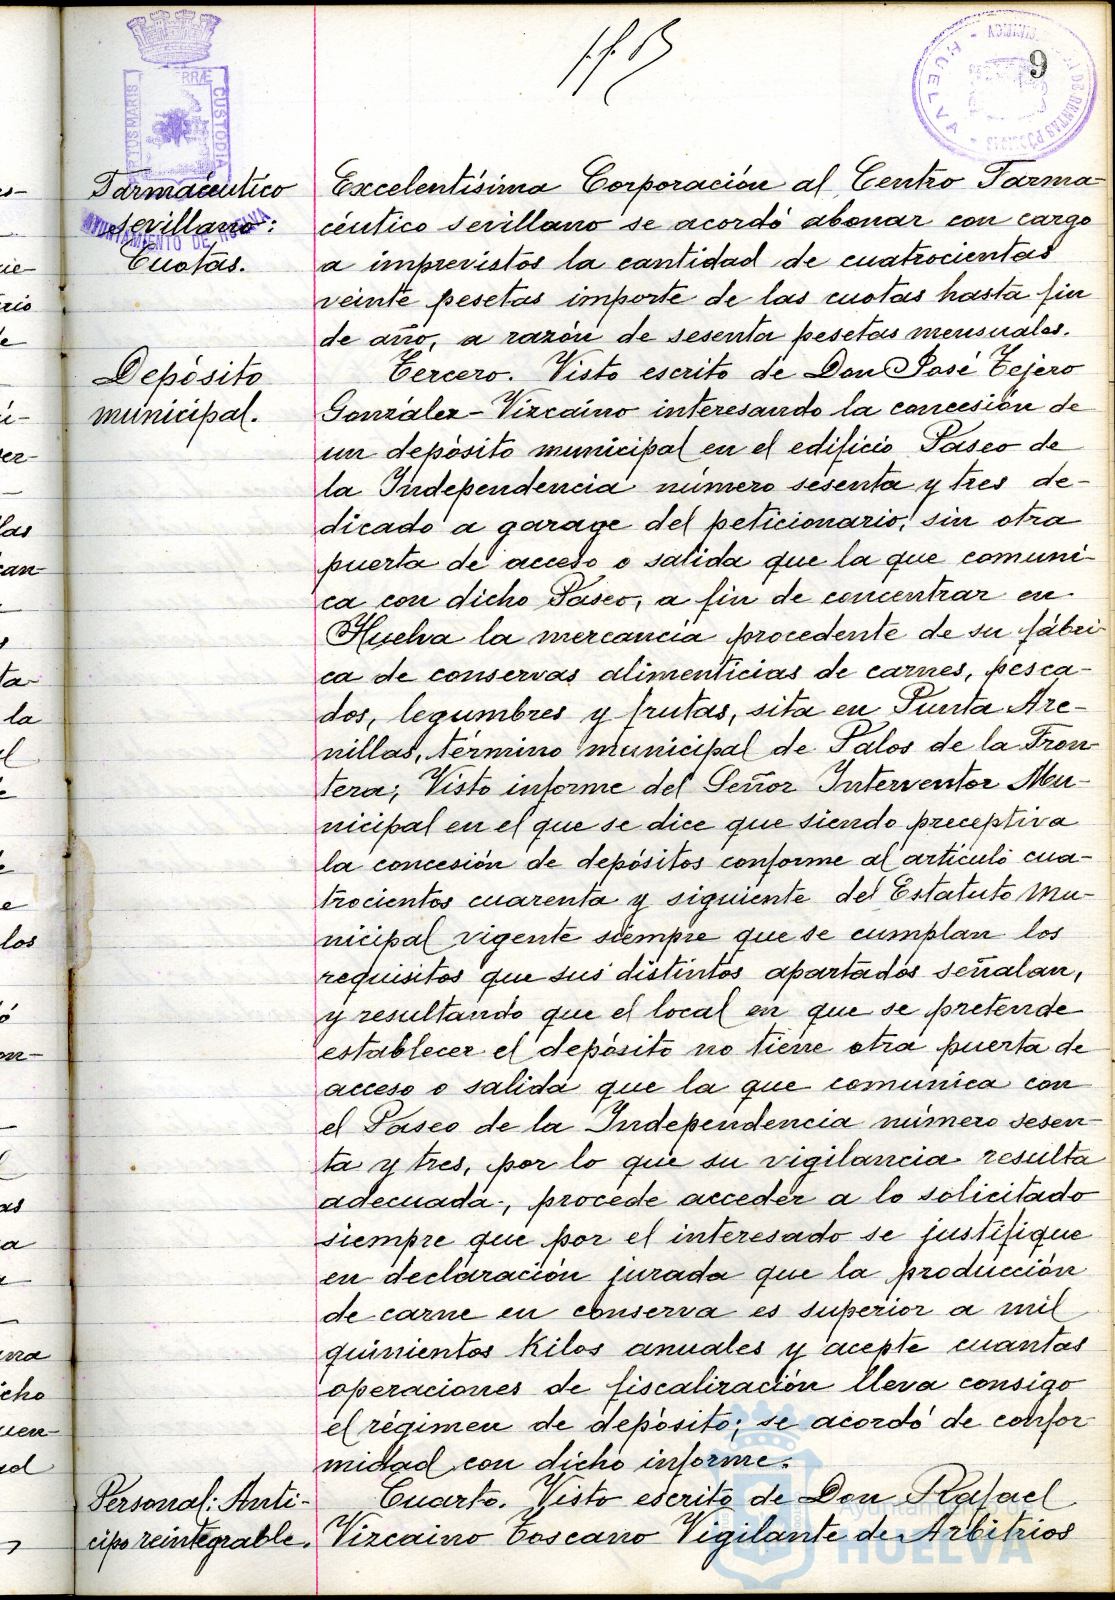 9
PORTUS MARIS
TERRÆ CUSTODIA
AYUNTAMIENTO DE HUELVA
HUELVA
Farmacéutico
sevillano:
Cuotas.
Excelentísima Corporación al Centro Farma-
céutico sevillano se acordó abonar con cargo
a imprevistos la cantidad de cuatrocientas
veinte pesetas importe de las cuotas hasta fin
de año, a razón de sesenta pesetas mensuales.
Depósito
municipal.
Tercero. Visto escrito de Don José Tejero
González-Vizcaíno interesando la concesión de
un depósito municipal en el edificio Paseo de
la Independencia número sesenta y tres de-
dicado a garage del peticionario, sin otra
puerta de acceso o salida que la que comuni-
ca con dicho Paseo, a fin de concentrar en
Huelva la mercancía procedente de su fábri-
ca de conservas alimenticias de carnes, pesca-
dos, legumbres y frutas, sita en Punta Are-
nillas, término municipal de Palos de la Fron-
tera; Visto informe del Señor Interventor Mu-
nicipal en el que se dice que siendo preceptiva
la concesión de depósitos conforme al artículo cua-
trocientos cuarenta y siguiente del Estatuto Mu-
nicipal vigente siempre que se cumplan los
requisitos que sus distintos apartados señalan,
y resultando que el local en que se pretende
establecer el depósito no tiene otra puerta de
acceso o salida que la que comunica con
el Paseo de la Independencia número sesen-
ta y tres, por lo que su vigilancia resulta
adecuada, procede acceder a lo solicitado
siempre que por el interesado se justifique
en declaración jurada que la producción
de carne en conserva es superior a mil
quinientos kilos anuales y acepte cuantas
operaciones de fiscalización lleva consigo
el régimen de depósito; se acordó de confor-
midad con dicho informe.
Personal: Anti-
cipo reintegrable.
Cuarto. Visto escrito de Don Rafael
Vizcaino Toscano Vigilante de Arbitrios
Ayuntamiento de
HUELVA